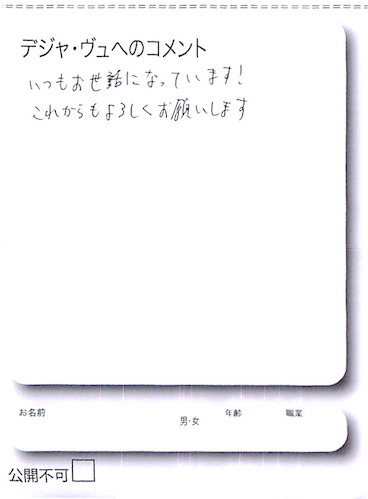 デジャ・ヴュへのコメント
いつもお世話になっています!
これからもよろしくお願いします
お名前
男・女
年齢
職業
公開不可